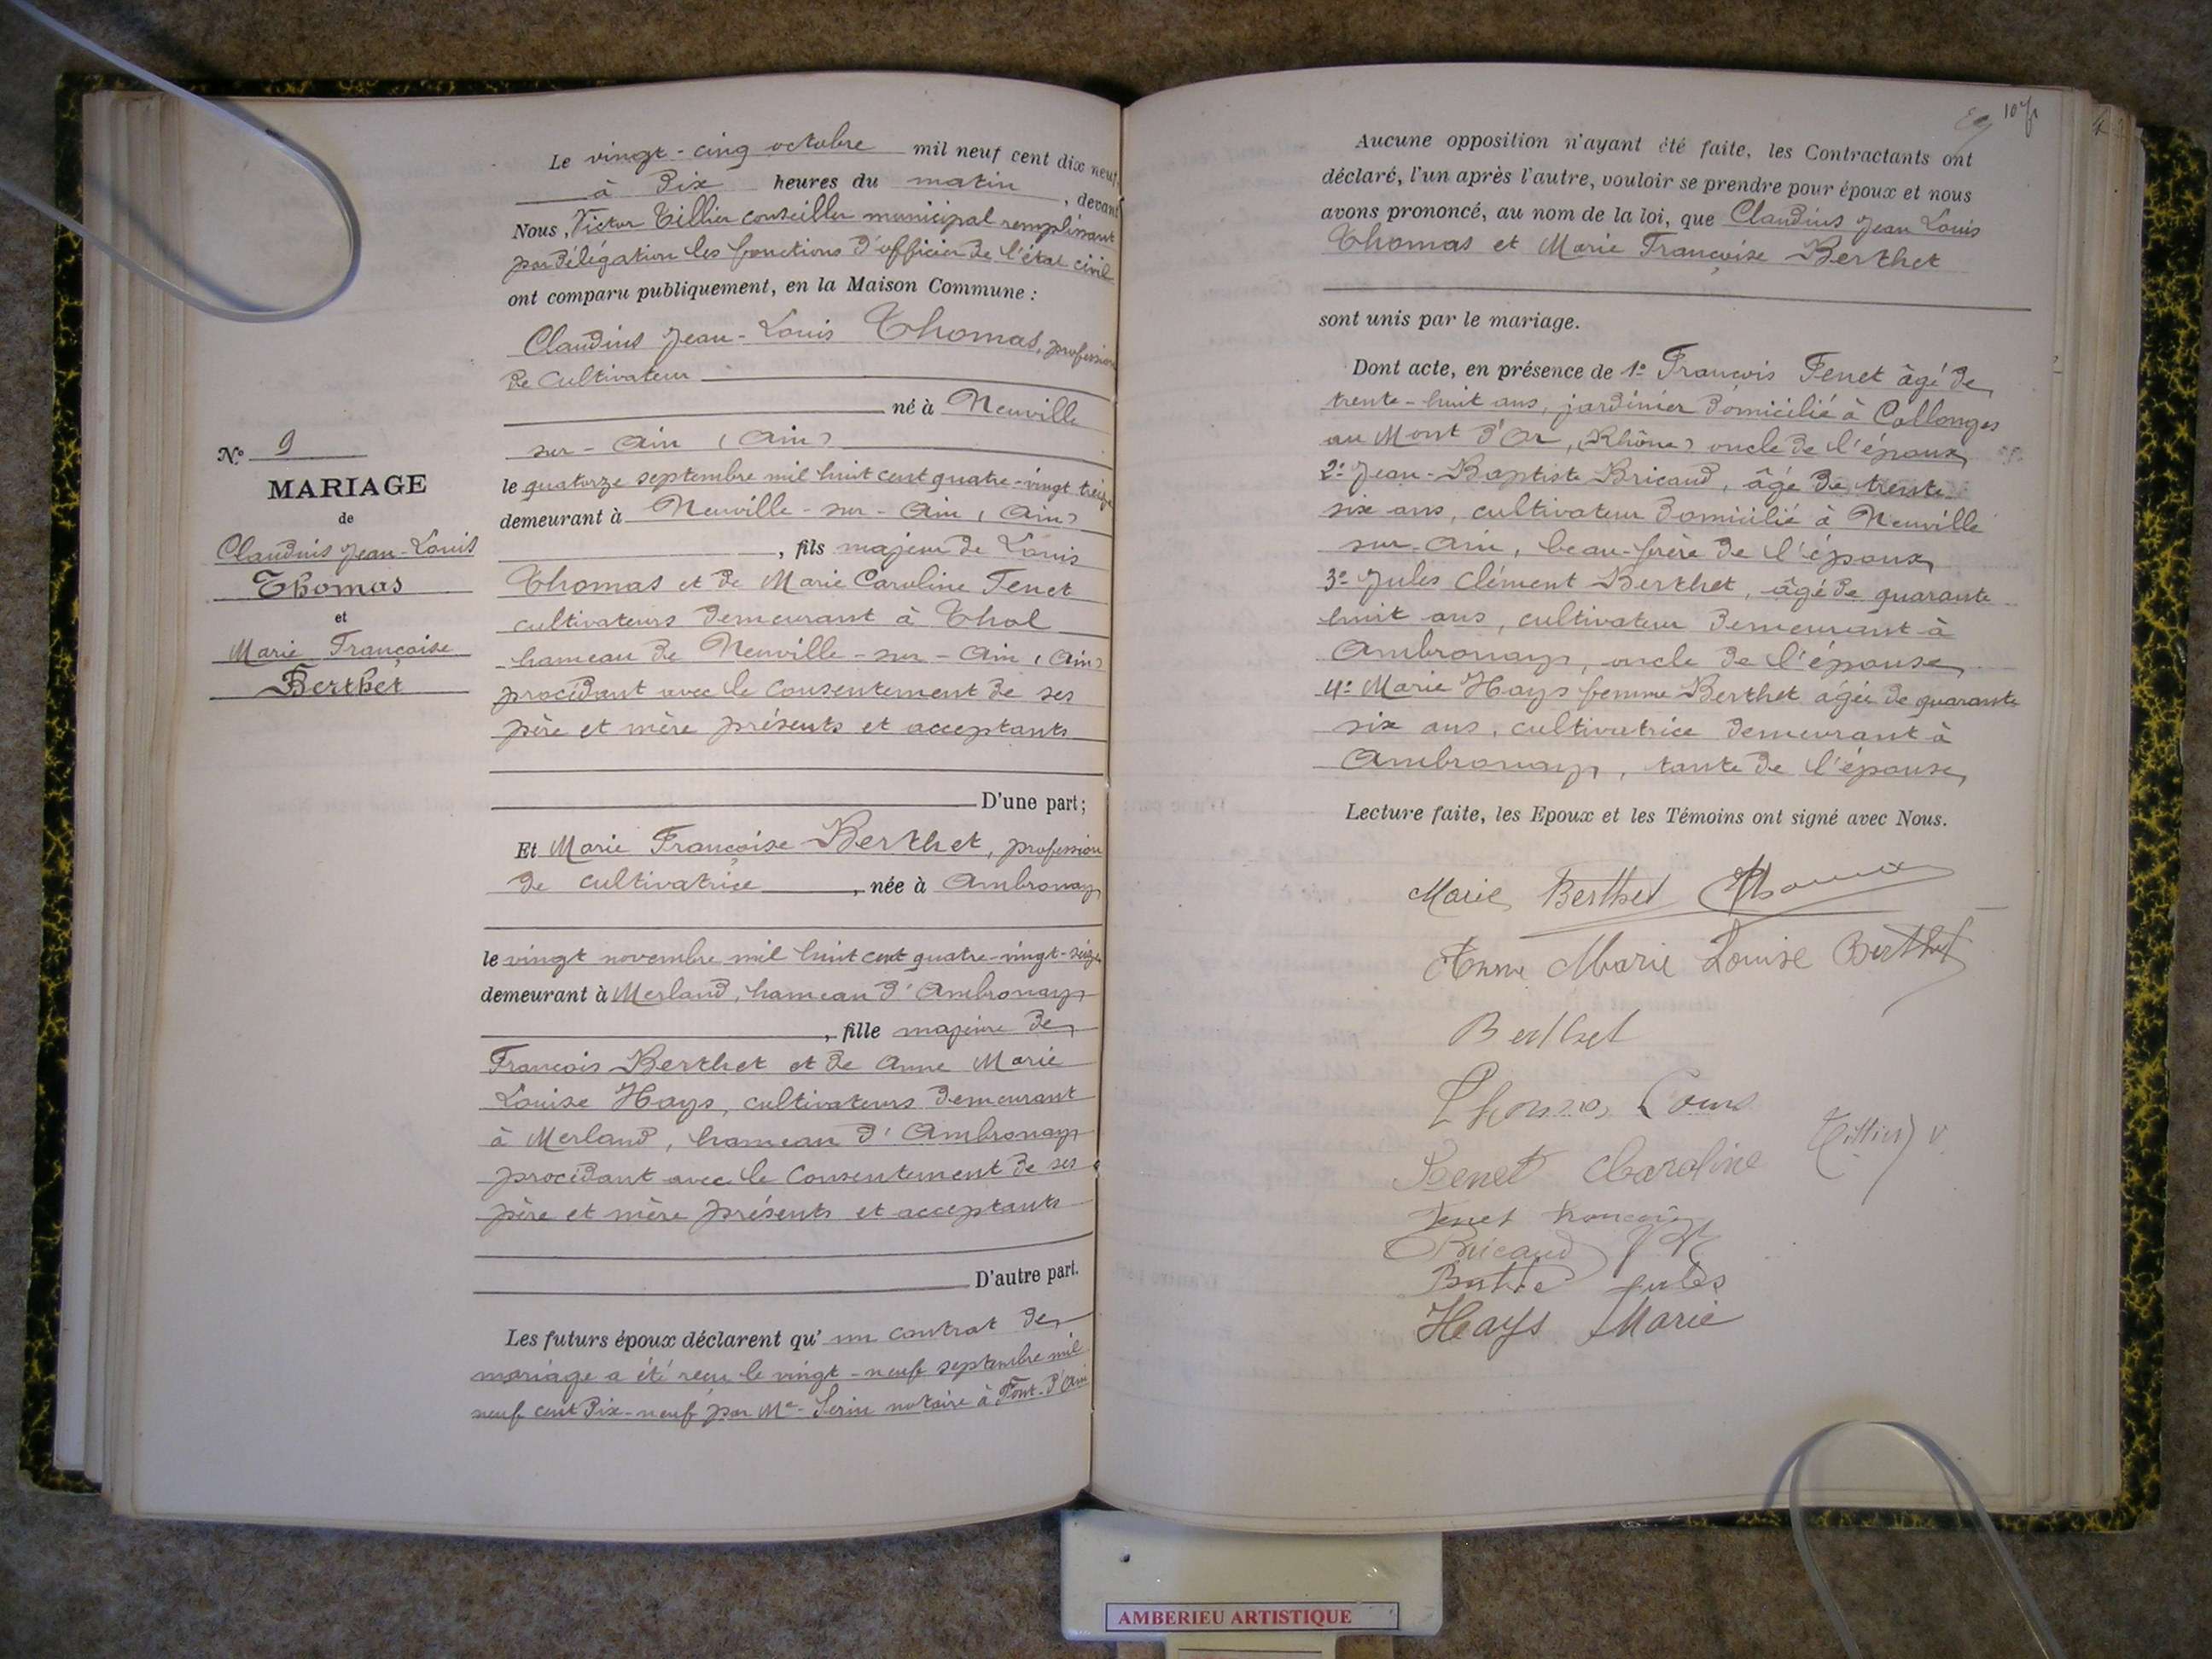 Le vingt-cinq octobre mil neuf cent dix neuf
à dix heures du matin, devant
Nous, Victor Tillier conseiller municipal remplissant
par délégation les fonctions d'officier de l'état civil
ont comparu publiquement, en la Maison Commune :
Claudius Jean-Louis Thomas, profession
de cultivateur
né à Neuville
sur-Ain (Ain)
le quatorze septembre mil huit cent quatre-vingt treize
demeurant à Neuville-sur-Ain (Ain)
, fils majeur de Louis
Thomas et de Marie Caroline Tenet
cultivateurs demeurant à Thol
hameau de Neuville-sur-Ain (Ain)
procédant avec le consentement de ses
père et mère présents et acceptants
D'une part;
N° 9
MARIAGE
de
Claudius Jean-Louis
Thomas
et
Marie Françoise
Berthet
Et Marie Françoise Berthet, profession
de cultivatrice, née à Ambronay
le vingt novembre mil huit cent quatre-vingt-seize
demeurant à Merland, hameau d'Ambronay
, fille majeure de
François Berthet et de Anne Marie
Louise Hays, cultivateurs demeurant
à Merland, hameau d'Ambronay
procédant avec le consentement de ses
père et mère présents et acceptants
D'autre part.
Les futurs époux déclarent qu'un contrat de
mariage a été reçu le vingt-neuf septembre mil
neuf cent dix-neuf par Me Serin notaire à Pont-d'Ain
107
Aucune opposition n'ayant été faite, les Contractants ont
déclaré, l'un après l'autre, vouloir se prendre pour époux et nous
avons prononcé, au nom de la loi, que Claudius Jean Louis
Thomas et Marie Françoise Berthet
sont unis par le mariage.
Dont acte, en présence de 1° François Tenet âgé de
trente-huit ans, jardinier domicilié à Collonges
au Mont d'Or, (Rhône) oncle de l'époux
2° Jean-Baptiste Bricaud, âgé de trente
six ans, cultivateur domicilié à Neuville
sur-Ain, beau-frère de l'époux
3° Jules Clément Berthet, âgé de quarante
huit ans, cultivateur demeurant à
Ambronay, oncle de l'épouse
4° Marie Hays femme Berthet âgée de quarante
six ans, cultivatrice demeurant à
Ambronay, tante de l'épouse
Lecture faite, les Epoux et les Témoins ont signé avec Nous.
Marie Berthet Thomas
Anne Marie Louise Berthet
Berthet
Thomas Louis
Tillier V
Tenet Caroline
Tenet François
Bricaud J B
Berthet Jules
Hays Marie
AMBERIEU ARTISTIQUE